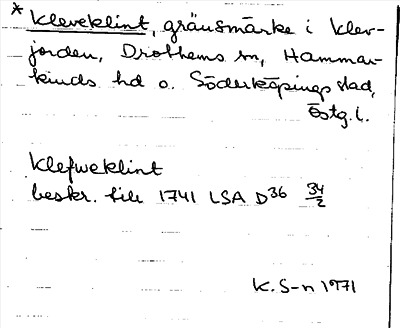 * Kleveklint, gränsmärke i Klev-
jorden, Drothems sn, Hammar-
kinds hd o. Söderköpings stad,
Östg. l.
Klefweklint
beskr. till 1741 LSA D36 34/2
K. S-n 1971